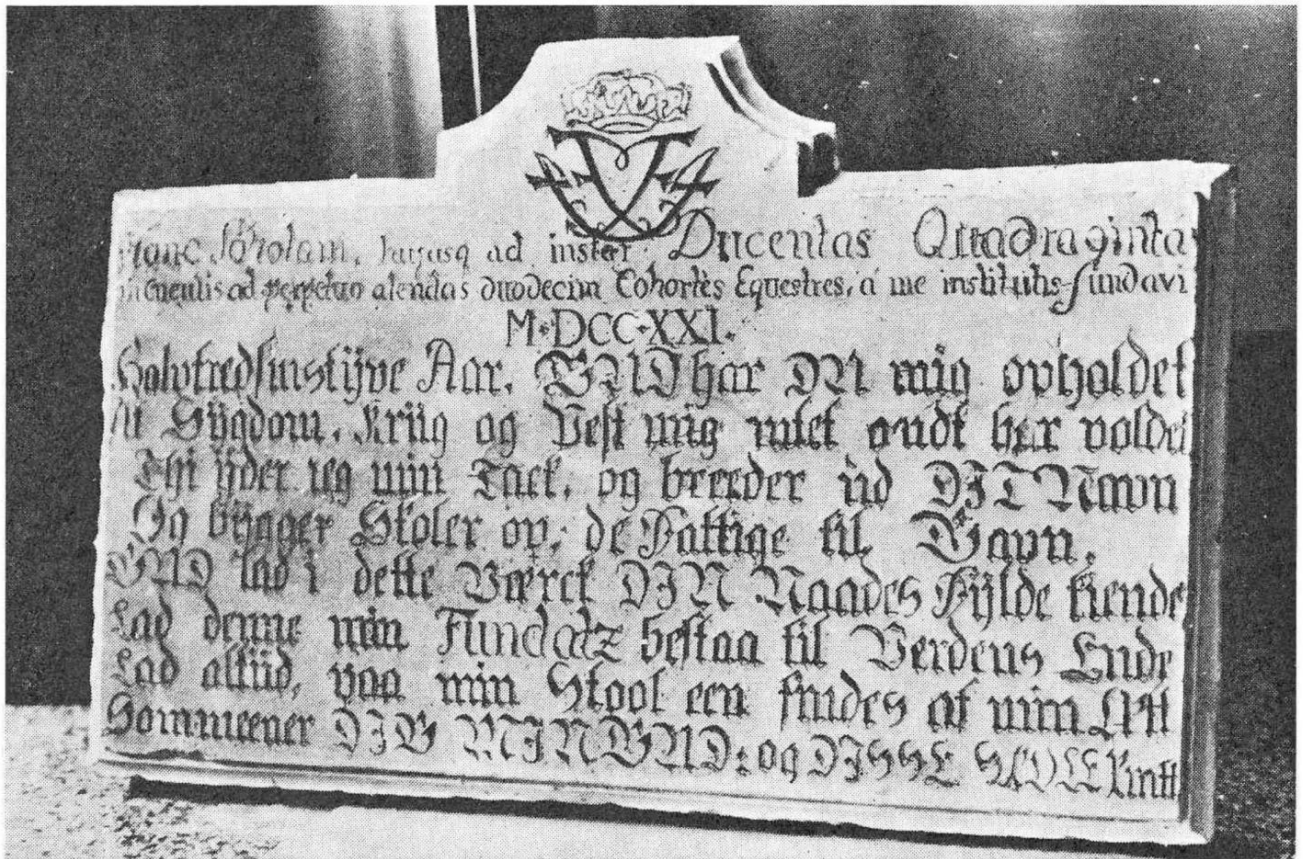 Hanc Scholam, hujusq ad instar Ducentas Quadraginta
ad perpetuo alendas duodecim Cohortes Equestres, á me institutis fundavi
M·DCC·XXI.
Halvfredsinstijve Aar, GUD har DU mig opholdet
At Sÿgdom, Krÿg og Pest mig intet ondt har voldet
Thi ÿder ieg min Tack, og breeder ud DIT Navn
Og bÿgger Skoler op, de Fattige til Gavn,
GUD lad i dette Værck DIN Naades Fÿlde kiende
Lad denne min Fundatz bestaa til Verdens Ende
Lad altiid, paa min Skool een findes af min Ætt
Som meener DIG MIN GUD: og DISSE SKOLE rætt